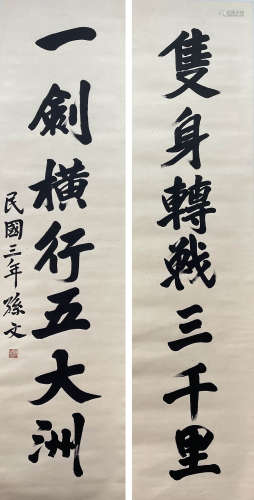 隻身轉戰三千里
一劍橫行五大洲
民國三年孫文